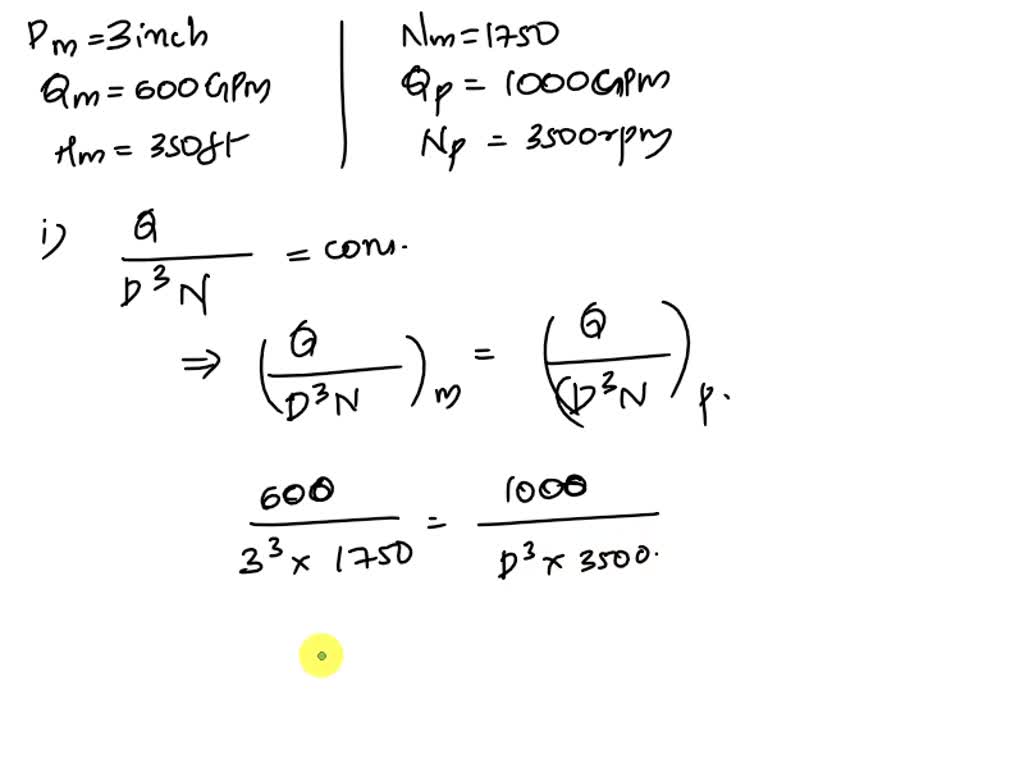 Dm = 3 inch
Qm = 600 GPM
Hm = 350ft
Nm = 1750
Qp = 1000 GPM
Np = 3500 rpm
i) Q / D³N = cons.
⇒ (Q / D³N)m = (Q / (D³N)p.
600 / 3³ x 1750 = 1000 / D³ x 3500.